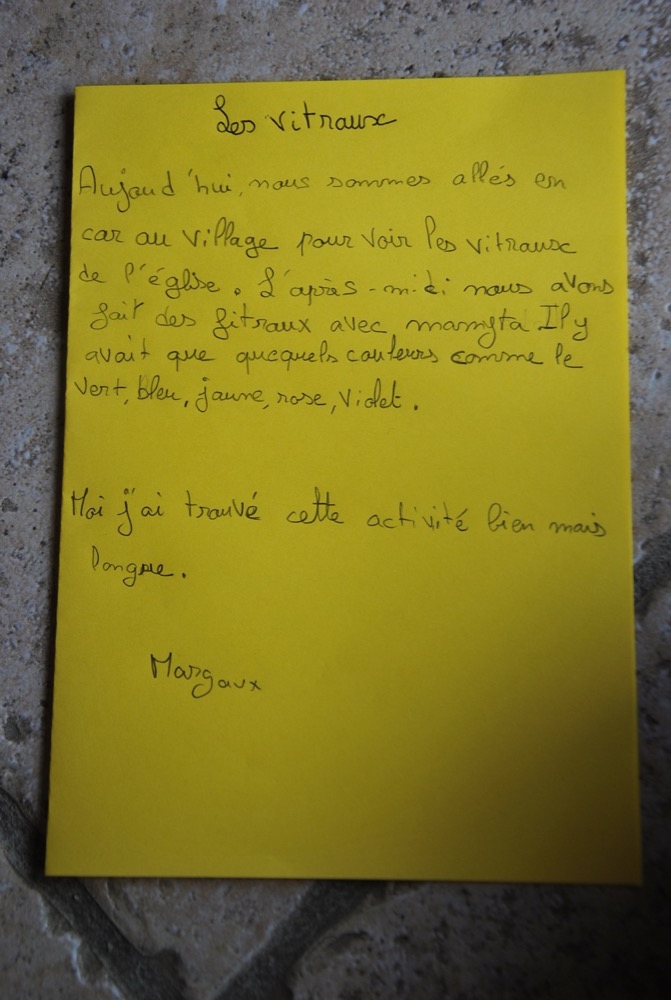 Les vitraux
Aujourd'hui, nous sommes allés en
car au village pour voir les vitraux
de l'église. L'après-midi nous avons
fait des fitraux avec mamyta Il y
avait que quequels couleurs comme le
vert, bleu, jaune, rose, violet.
Moi j'ai trouvé cette activité bien mais
longue.
Margaux